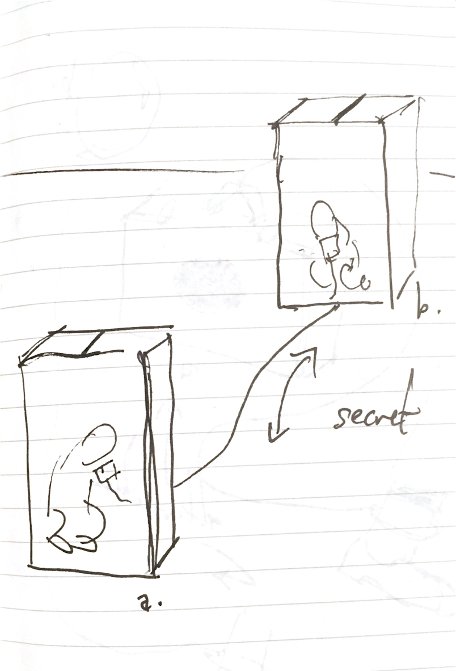 b.
secret
a.